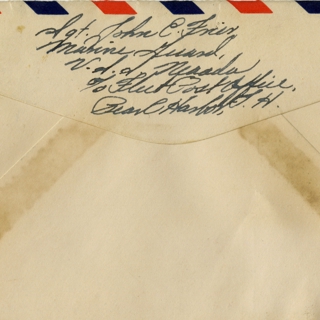 Sgt. John E. Frix,
Marine Guard,
U.S.S. Nevada
℅ Fleet Post Office,
Pearl Harbor, T. H.